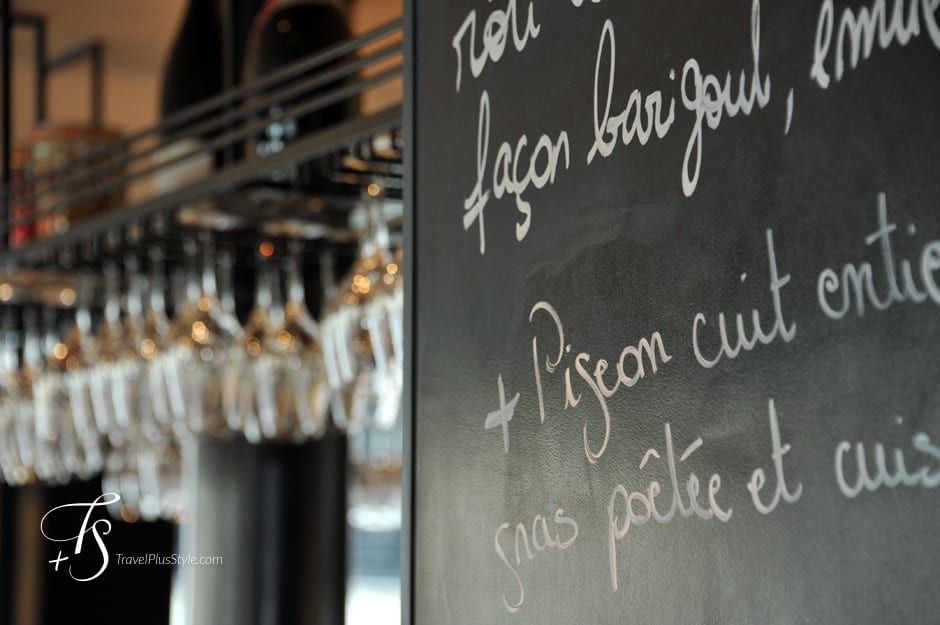 rôti
façon barigoul, émul
+ Pigeon cuit entie
gras poêtée et cuis
T+S TravelPlusStyle.com